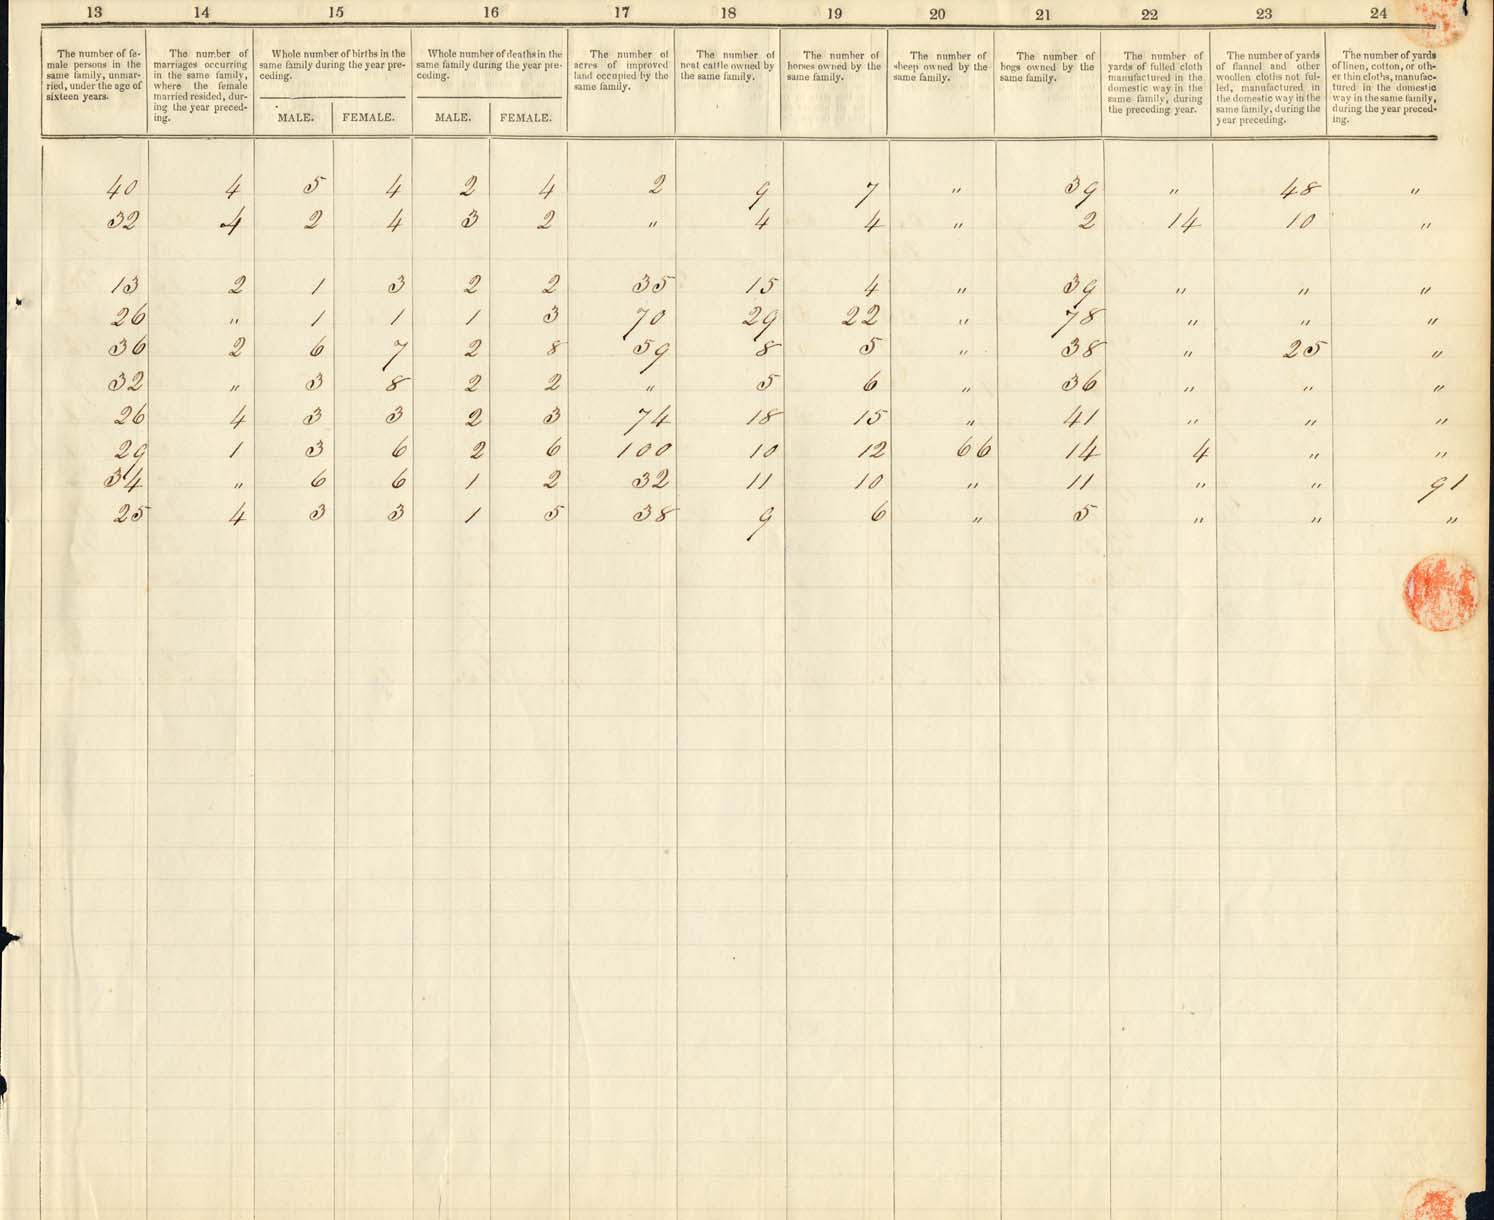 13 14 15 16 17 18 19 20 21 22 23 24
The number of fe-
male persons in the
same family, unmar-
ried, under the age of
sixteen years.
The number of
marriages occurring
in the same family,
where the female
married resided, dur-
ing the year preced-
ing.
Whole number of births in the
same family during the year pre-
ceding.
MALE. FEMALE.
Whole number of deaths in the
same family during the year pre-
ceding.
MALE. FEMALE.
The number of
acres of improved
land occupied by the
same family.
The number of
neat cattle owned by
the same family.
The number of
horses owned by the
same family.
The number of
sheep owned by the
same family.
The number of
hogs owned by the
same family.
The number of
yards of fulled cloth
manufactured in the
domestic way in the
same family, during
the preceding year.
The number of yards
of flannel and other
woollen cloths not ful-
led, manufactured in
the domestic way in the
same family, during the
year preceding.
The number of yards
of linen, cotton, or oth-
er thin cloths, manufac-
tured in the domestic
way in the same family,
during the year preced-
ing.
40 4 5 4 2 4 2 9 7 " 39 " 48 "
32 4 2 4 3 2 " 4 4 " 2 14 10 "
13 2 1 3 2 2 35 15 4 " 39 " " "
26 " 1 1 1 3 70 29 22 " 78 " " "
36 2 6 7 2 8 59 8 5 " 38 " 25 "
32 " 3 8 2 2 " 5 6 " 36 " " "
26 4 3 3 2 3 74 18 15 " 41 " " "
29 1 3 6 2 6 100 10 12 66 14 4 " "
34 " 6 6 1 2 32 11 10 " 11 " " 91
25 4 3 3 1 5 38 9 6 " 5 " " "